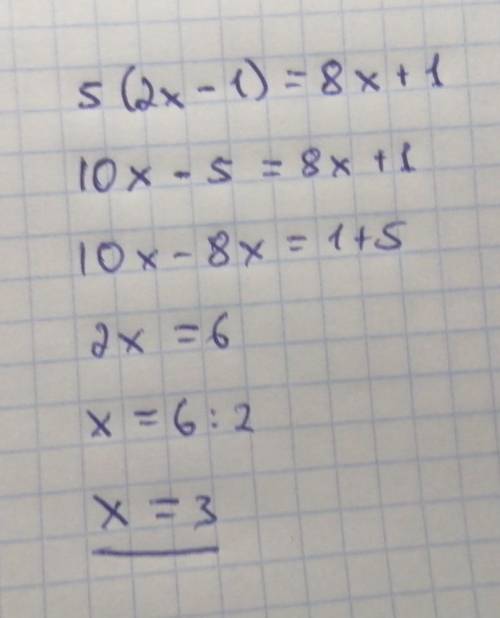 5(2x-1)=8x+1
10x-5=8x+1
10x-8x=1+5
2x=6
x=6:2
x=3